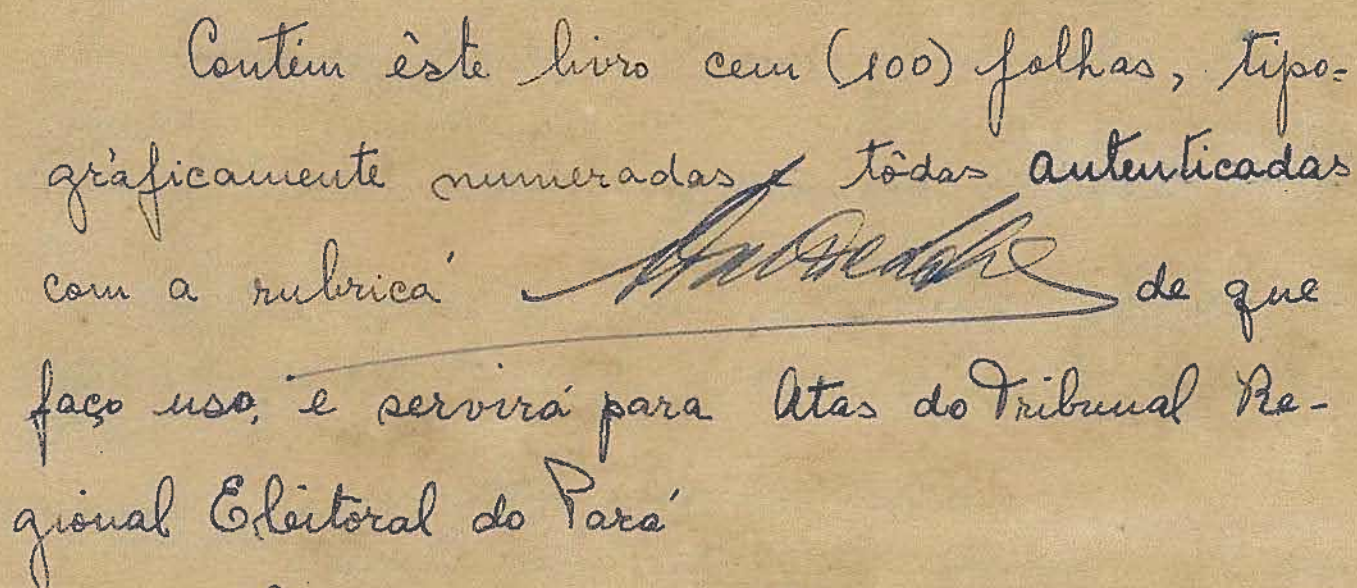 Contém êste livro cem (100) folhas, tipo=
gràficamente numeradas e tôdas autenticadas
com a rubrica de que
faço uso, e servirá para Atas do Tribunal Re-
gional Eleitoral do Pará